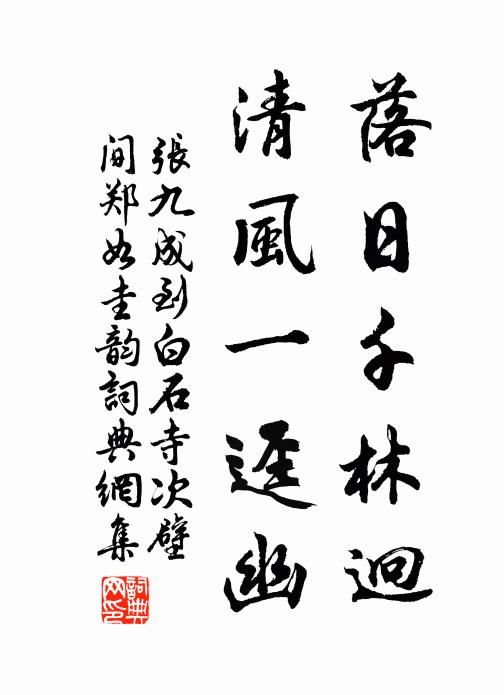 落日千林逈
清風一逕幽
張九成到白石寺次壁
间郑如圭韵詞典網集
詞典网印